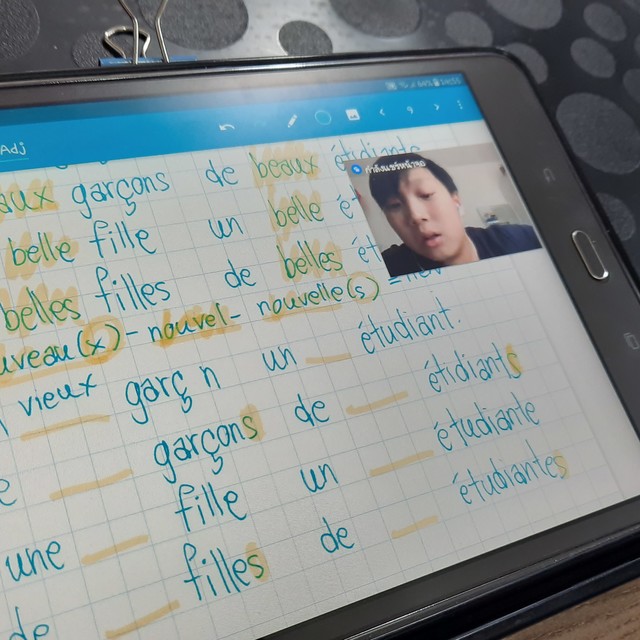 Adj
aux garçons de beaux étudiants
belle fille un belle ét
belles filles de belles ét
uveau(x) - nouvel - nouvelle(s) = nev
vieux garç n un __ étudiant.
garçons de __ étidiants
fille un __ étudiante
une __ filles de __ étudiantes
de
กำลังแชร์หน้าจอ